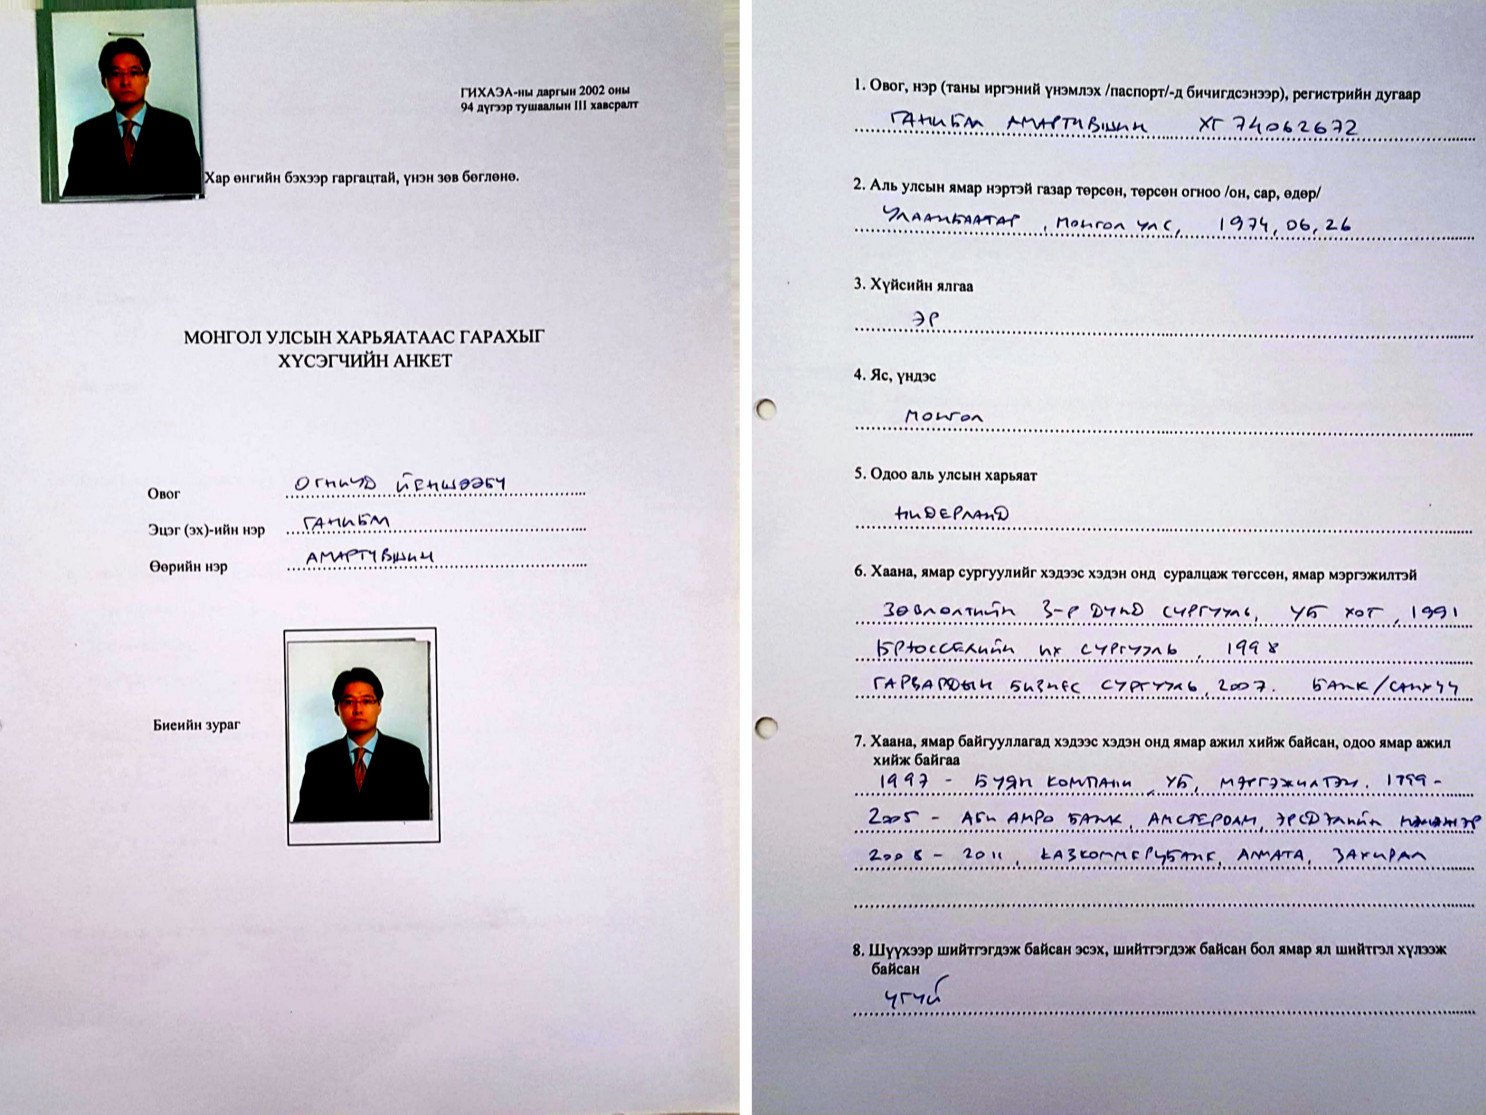 ГИХАЭА-ны даргын 2002 оны
94 дүгээр тушаалын III хавсралт
Хар өнгийн бэхээр гаргацтай, үнэн зөв бөглөнө.
МОНГОЛ УЛСЫН ХАРЬЯАТААС ГАРАХЫГ
ХҮСЭГЧИЙН АНКЕТ
Овог ОГНИУД ЙЕНШӨӨБҮ
Эцэг (эх)-ийн нэр ГАНИБМ
Өөрийн нэр АМАРТҮВШИН
Биеийн зураг
1. Овог, нэр (таны иргэний үнэмлэх /паспорт/-д бичигдсэнээр), регистрийн дугаар
ГАНИБМ АМАРТҮВШИН ХГ 74062672
2. Аль улсын ямар нэртэй газар төрсөн, төрсөн огноо /он, сар, өдөр/
УЛААНБААТАР, МОНГОЛ УЛС, 1974, 06, 26
3. Хүйсийн ялгаа
ЭР
4. Яс, үндэс
МОНГОЛ
5. Одоо аль улсын харьяат
НИДЕРЛАНД
6. Хаана, ямар сургуулийг хэдээс хэдэн онд суралцаж төгссөн, ямар мэргэжилтэй
ЗӨВЛӨЛТИЙН 3-Р ДУНД СУРГУУЛЬ, УБ ХОТ, 1991
БРЮССЕЛИЙН ИХ СУРГУУЛЬ, 1998
ГАРВАРДЫН БИЗНЕС СУРГУУЛЬ, 2007. БАНК/САНХҮҮ
7. Хаана, ямар байгууллагад хэдээс хэдэн онд ямар ажил хийж байсан, одоо ямар ажил
хийж байгаа
1997 - БУЯН КОМПАНИ, УБ, МЭРГЭЖИЛТЭН. 1999 -
2005 - АБН АМРО БАНК, АМСТЕРДАМ, ЭРСДЭЛИЙН МЕНЕЖЕР
2008 - 2011, КАЗКОММЕРЦБАНК, АЛМАТА, ЗАХИРАЛ
8. Шүүхээр шийтгэгдэж байсан эсэх, шийтгэгдэж байсан бол ямар ял шийтгэл хүлээж
байсан
ҮГҮЙ